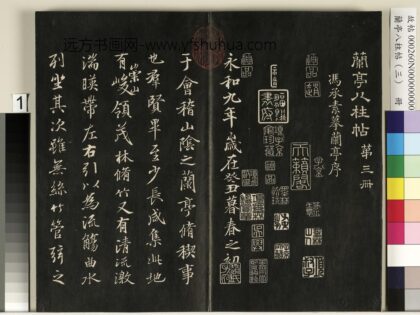 故帖000260N00000000
蘭亭八柱帖(三) 冊
蘭亭八柱帖 第三冊
馮承素摹蘭亭序
永和九年歲在癸丑暮春之初
于會稽山陰之蘭亭脩稧事
也羣賢畢至少長咸集此地
有崇山峻領茂林脩竹又有清流激
湍暎帶左右引以為流觴曲水
列坐其次雖無絲竹管弦之
1
远方书画网-www.yfshuhua.com